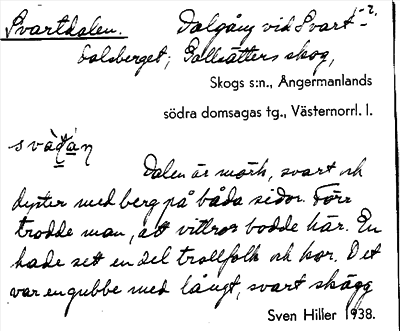 Svartdalen. Dalgång vid Svart- 2.
dalsberget, Gallsätters skog,
Skogs s:n., Ångermanlands
södra domsagas tg., Västernorrl. l.
Dalen är mörk, svart och
dyster med berg på båda sidor. Förr
trodde man, att vittror bodde här. En
hade sett en del trollfolk och kor. Det
var en gubbe med långt, svart skägg
Sven Hiller 1938.